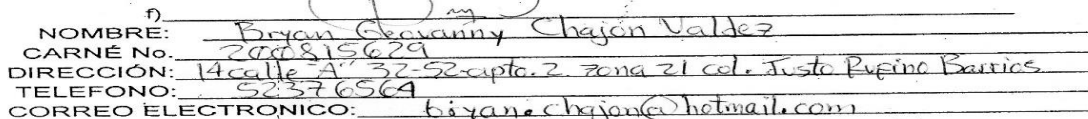 f)
NOMBRE: Bryan Geovanny Chajón Valdez
CARNÉ No. 200815629
DIRECCIÓN: 14 calle "A" 32-52 apto. 2 zona 21 col. Justo Rufino Barrios
TELEFONO: 52376564
CORREO ELECTRONICO: biyane.chajon@hotmail.com